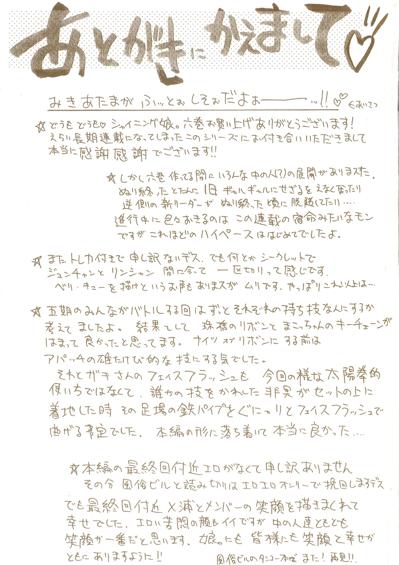 あとがきにかえまして
みきあたまがふぃっとぉしそぉだよぉーーッ!!
☆どうもどうも♡シャイニング娘。六巻お買い上げありがとうございます!
えらい長期連載になってしまったこのシリーズにお付き合いいただきまして
本当に感謝感謝でございます!!
☆しかし六巻作ってる間にいろんな中の人(?)の展開がありまスた。
ぬり終ったとたんに1日ギャルギャルにせざるをえなくなったり
逆側の新リーダーがぬり終った頃に脱退してたり…。
進行中に色々おきるのはこの連載の宿命みたいなモン
ですがこれほどのハイペースははじめてでしたよ。
☆またトレカ付きまで申し訳ないデス。でも何とかシークレットで
ジュンチャンとリンシャン間に合って一区切りって感じです。
ベリ・キューを描けという声もありまスがムリです。やっぱりこれ以上は…
☆五期のみんながバトルする回はずっとそれぞれの持ち技なんにするか
考えてましたよ。結果として珠璃のリボンとまこっちゃんのキーチェーンが
はまって良かったと思ってます。ナイツオブリボンにする前は
アパッチの雄たけび的な技にする気でした。
それとガキさんのフェイスフラッシュも今回の様な太陽拳的
使いちではなくて、誰かの技をかわした非晃がセットの上に
着地した時その足場の鉄パイプをぐにっりとフェイスフラッシュで
曲げる予定でした。本編の形に落ち着いて本当に良かった…。
☆本編の最終回付近エロがなくて申し訳ありません
その分風俗ビルと読み切りはエロエロオンリーで挽回しまスデス
でも最終回付近×浦とメンバーの笑顔を描きまくれて
幸せでした。エロい苦悶の顔もイイですが中の人達ともども
笑顔が一番だと思います。娘。にも皆様にも笑顔と幸せが
ともにありますように!!
また!再見!!